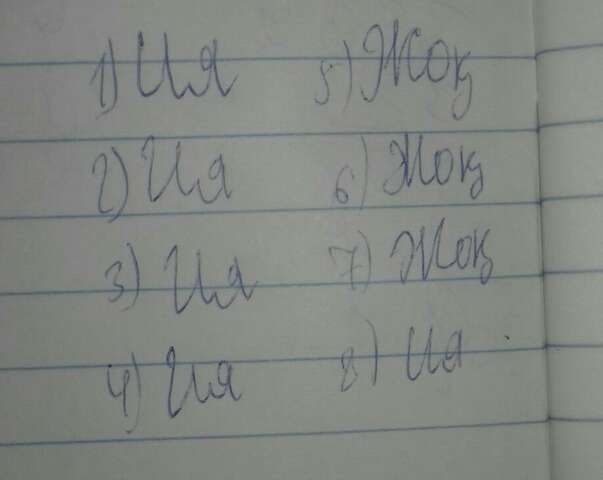 1) Ия 5) Жоқ
2) Ия 6) Жоқ
3) Ия 7) Жоқ
4) Ия 8) Ия